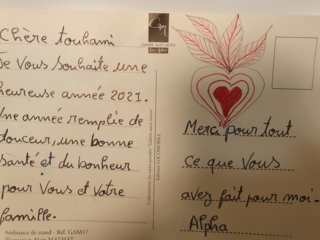 Chère touhami
Je Vous souhaite une
heureuse année 2021.
Une année remplie de
douceur, une bonne
santé et du bonheur
pour Vous et Votre
famille.
Ambiance de stand - Réf. GAM17
Merci pour tout
ce que Vous
avez fait pour moi.
Alpha